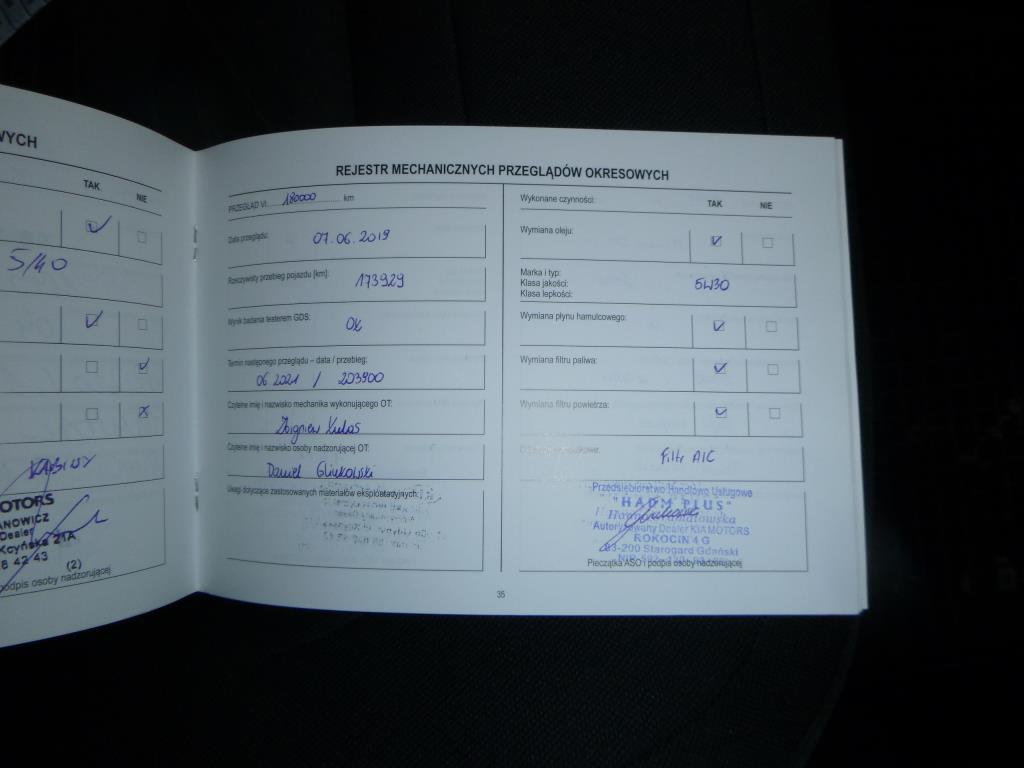 WYCH
TAK
NIE
5/40
KABINY
MOTORS
ANOWICZ
Dealer
Kcyńska 21A
8 42 43
(2)
podpis osoby nadzorującej
REJESTR MECHANICZNYCH PRZEGLĄDÓW OKRESOWYCH
PRZEGLĄD VI 180000 km
Data przeglądu: 07.06.2019
Rzeczywisty przebieg pojazdu [km]: 173929
Wynik badania testerem GDS: OK
Termin następnego przeglądu – data / przebieg:
06 2021 / 203900
Czytelne imię i nazwisko mechanika wykonującego OT:
Zbigniew
Czytelne imię i nazwisko osoby nadzorującej OT:
Daniel Glinkowski
Uwagi dotyczące zastosowanych materiałów eksploatacyjnych:
Wykonane czynności: TAK NIE
Wymiana oleju:
Marka i typ:
Klasa jakości: 5W30
Klasa lepkości:
Wymiana płynu hamulcowego:
Wymiana filtru paliwa:
Wymiana filtru powietrza:
Filtr A/C
Przedsiębiorstwo Handlowo Usługowe
"HADM PLUS"
Autoryzowany Dealer KIA MOTORS
ROKOCIN 4 G
83-200 Starogard Gdański
Pieczątka ASO i podpis osoby nadzorującej
35